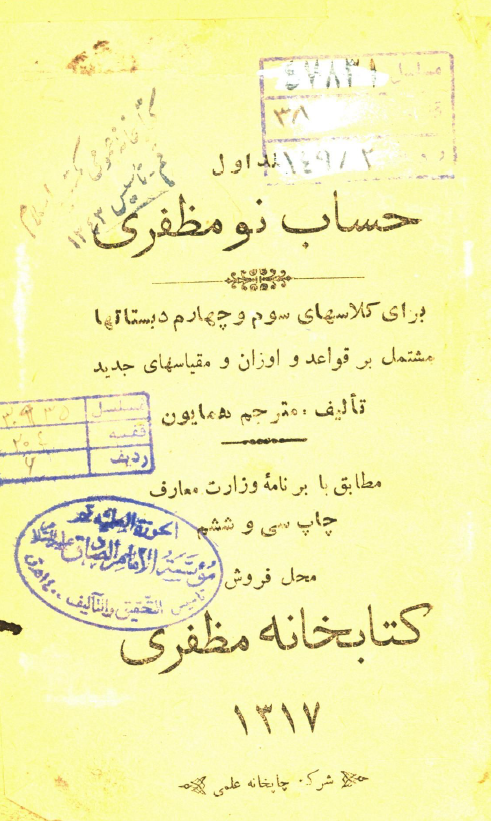 مسلسل ٤٧٨٣١
٣٨١
١٤٩/٢
جلد اول
حساب نو مظفری
برای کلاسهای سوم و چهارم دبستانها
مشتمل بر قواعد و اوزان و مقیاسهای جدید
تألیف : مترجم همایون
مسلسل
قفسه
ردیف
مطابق با برنامهٔ وزارت معارف
چاپ سی و ششم
الحوزة العلمیة قم
مؤسسة الامام الصادق علیه السلام
التحقیق والتألیف
محل فروش
کتابخانه مظفری
۱۳۱۷
شرکت چاپخانه علمی